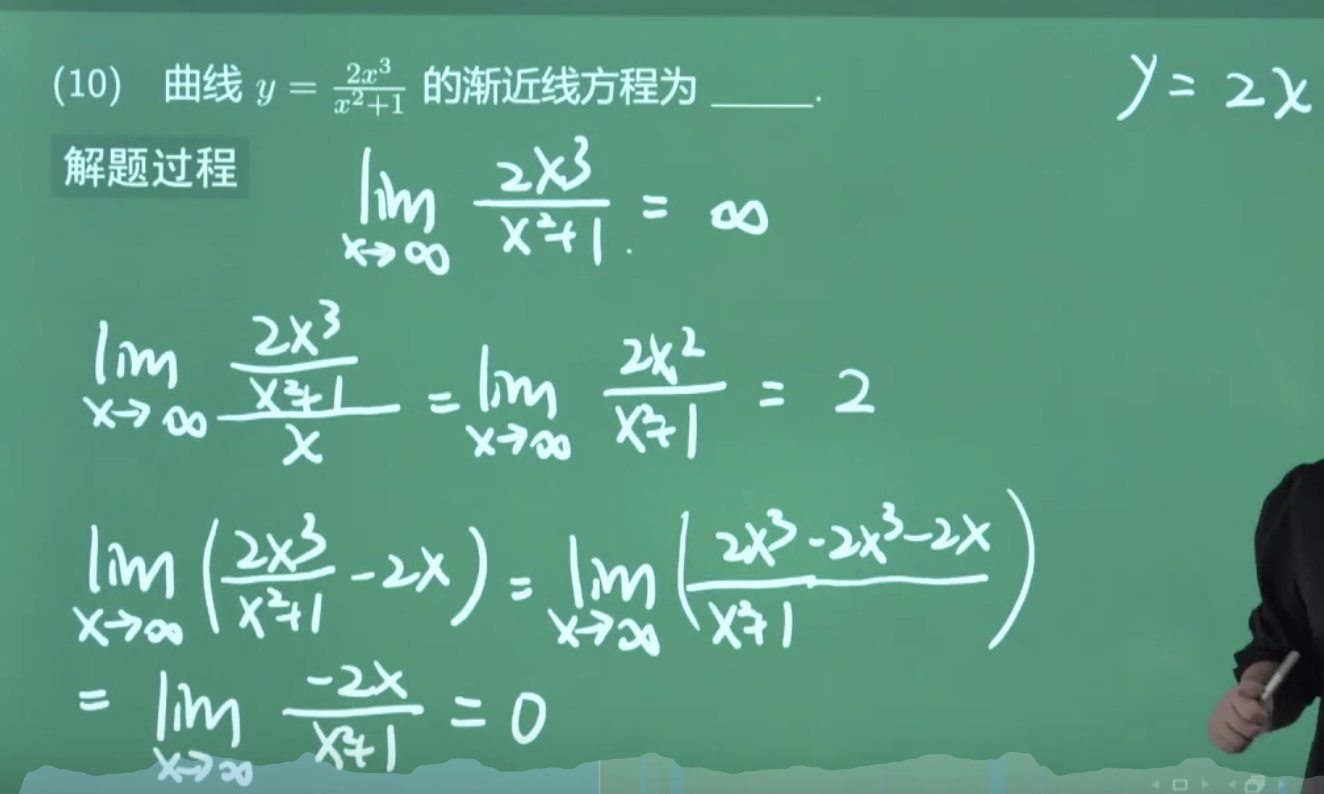 (10) 曲线 y = \frac{2x^3}{x^2+1} 的渐近线方程为 ______.
y = 2x
解题过程
\lim_{x→∞} \frac{2x^3}{x^2+1} = ∞
\lim_{x→∞} \frac{\frac{2x^3}{x^2+1}}{x} = \lim_{x→∞} \frac{2x^2}{x^2+1} = 2
\lim_{x→∞} (\frac{2x^3}{x^2+1} - 2x) = \lim_{x→∞} (\frac{2x^3-2x^3-2x}{x^2+1})
= \lim_{x→∞} \frac{-2x}{x^2+1} = 0